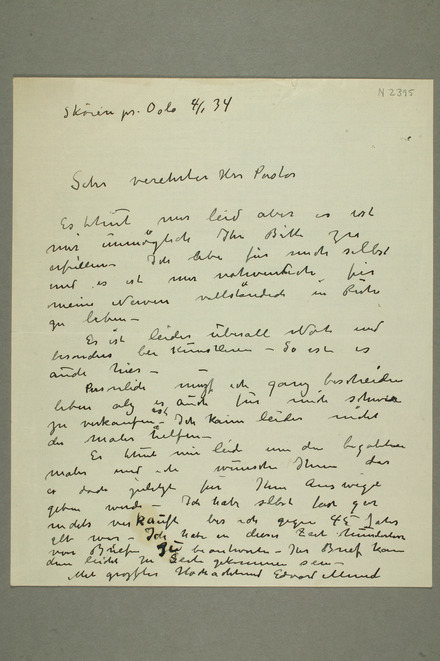 N 2395
Skøien pr. Oslo 4/1 34
Sehr verehrter Herr Pastor
Es thut mir leid aber es ist
mir unmöglich Ihr Bitte zu
erfüllen – Ich lebe für mich selbst
und es ist mir nothwendich für
meine Nerven vollständich in Ruhe
zu leben –
Es ist leider überall Noth und
besonders bei Künstleren – So ist es
auch hier –
Persönlich muss ich ganz bescheiden
leben als es auch für mich schwer
zu verkaufen ist – Ich kann leider nicht
der Maler helfen –
Es thut mir leid um den begabten
Maler und ich wünsche Ihnen das
es doch zuletzt für Ihm Auswege
geben werde – Ich habe selbst fast gar
nichts verkauft bis ich gegen 45 Jahre
alt war – Ich habe in dieser Zeit hunderte
von Briefen zu beantworten – Ihr Brief kann
dem leicht zu Seite gekommen sein –
Mit grösster Hochachtung Edvard Munch